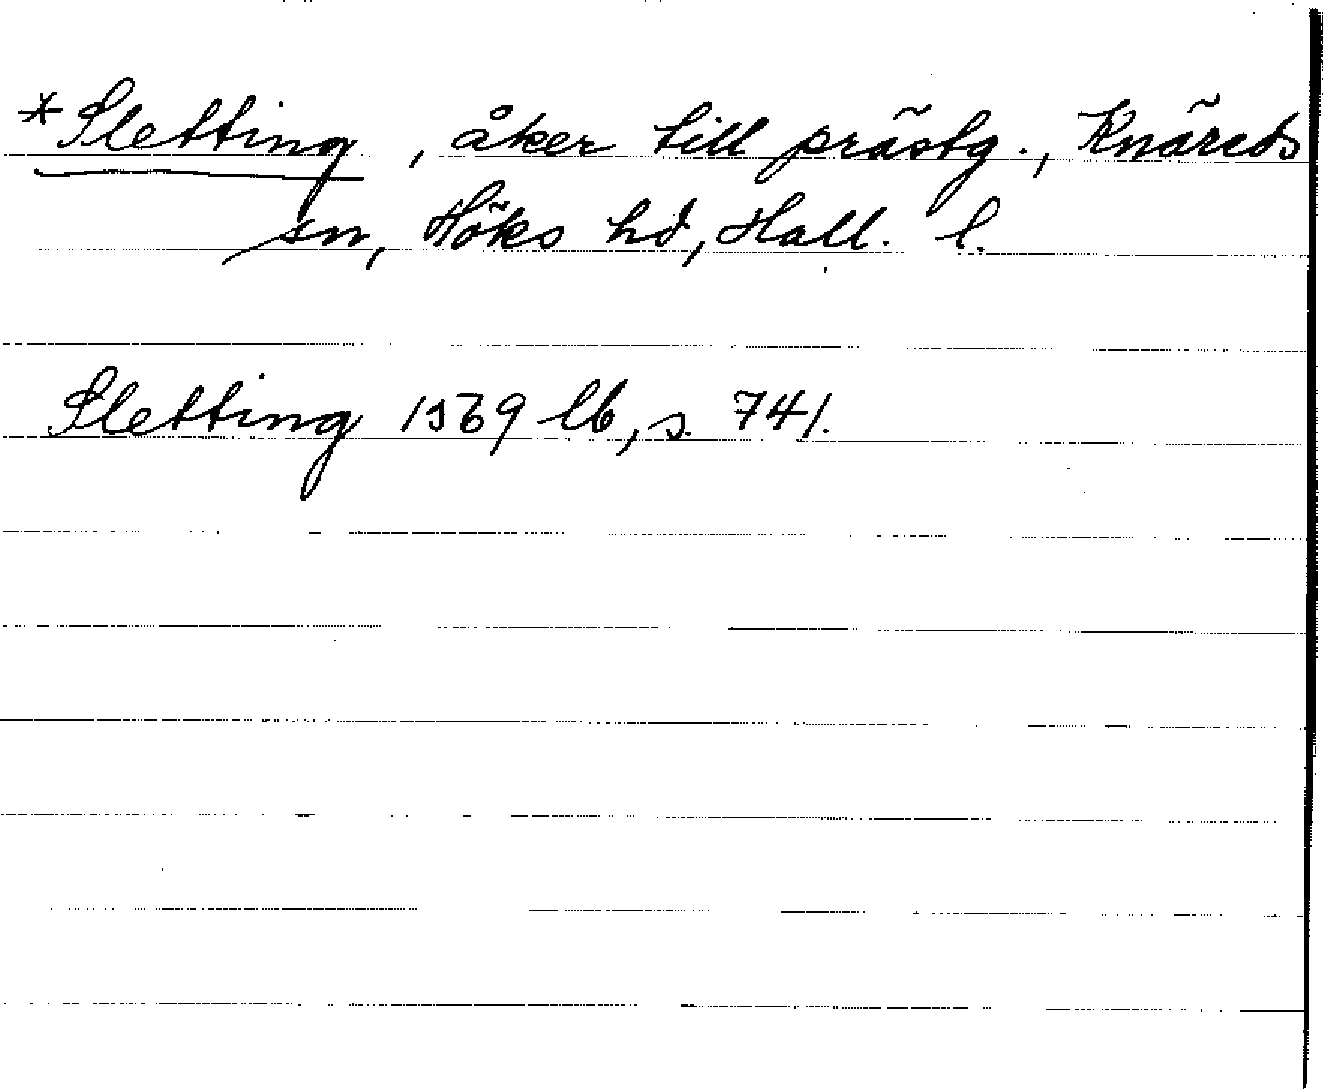 *Sletting, åker till prästg., Knäreds
sn, Höks hd, Hall. l.
Sletting 1569 lb, s. 741.